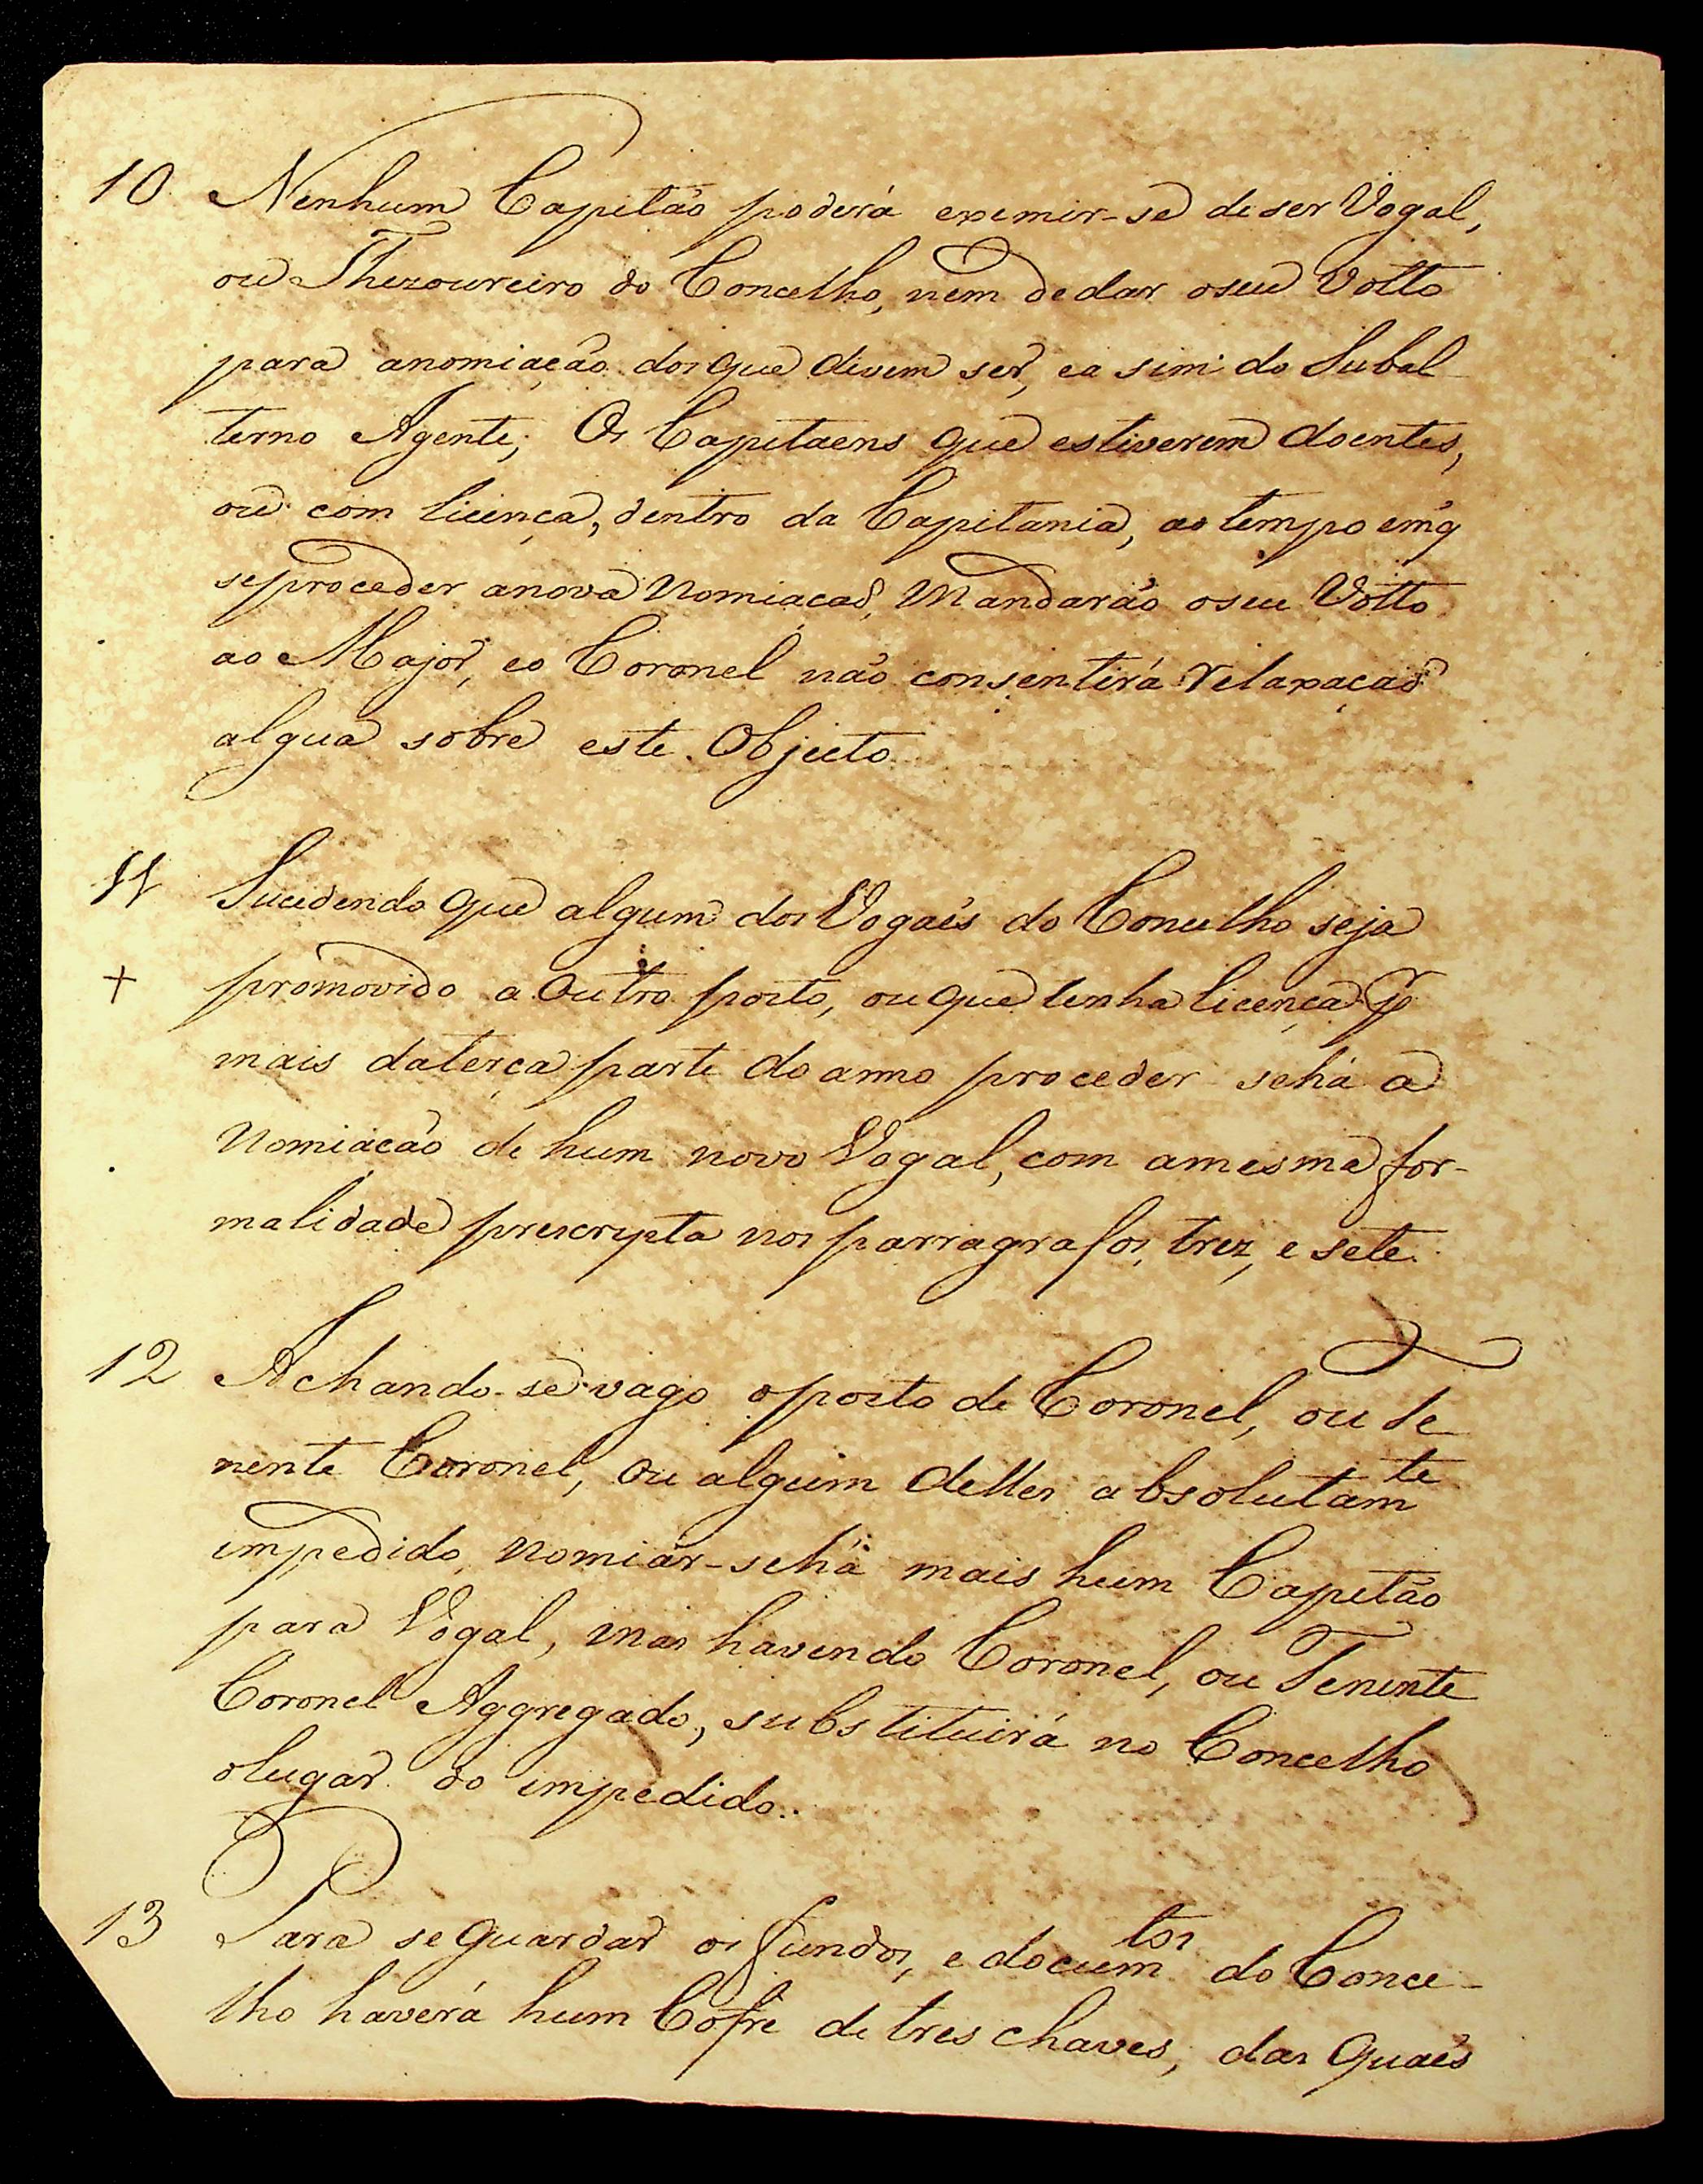 10 Nenhum Capitão poderá exemir-se de ser Vogal,
ou Thezoureiro do Concelho, nem de dar o seu Votto
para anomiação dos que divem ser, ea sim do Subal
terno Agente; Os Capitaens que estiverem doentes,
ou com licença, dentro da Capitania, ao tempo em q̃
se proceder anova Nomiaçaõ, Mandarão o seu Votto
ao Major, eo Coronel não consentirá relaxaçaõ
algua sobre este Objecto
11 Sucedendo que algum dos Vogaes do Concelho seja
+ promovido a Outro posto, ou que tenha licença p̃
mais da terça parte do anno proceder sehá a
Nomiacão de hum novo Vogal, com amesma for-
malidade prescripta nos parragrafos, trez, e sete.
12 Achando-se vago o posto de Coronel, ou Te
nente Coronel, ou algum delles absolutam.te
impedido, Nomiar-sehá mais hum Capitão
para Vogal, mas havendo Coronel, ou Tenente
Coronel Aggregado, substituirá no Concelho
olugar do impedido..
13 Para se guardar os fundos, e docum.tos do Conce-
lho haverá hum Cofre de tres chaves, das Quaes